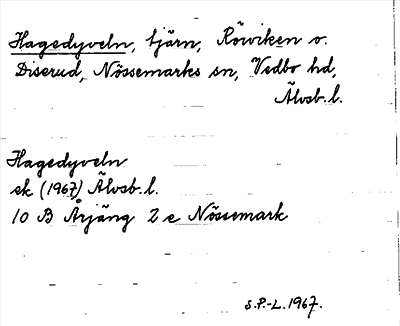 Hagedyveln, tjärn, Röwiken o.
Diserud, Nössemarks sn, Vedbo hd,
Älvsb. l.
Hagedyveln
ek (1967) Älvsb. l.
10 B Årjäng 2 e Nössemark
S.P.-L. 1967.